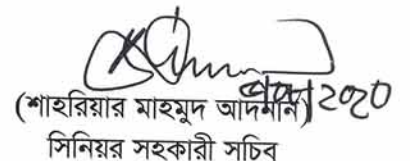 ২০২০
(শাহরিয়ার মাহমুদ আদনান)
সিনিয়র সহকারী সচিব